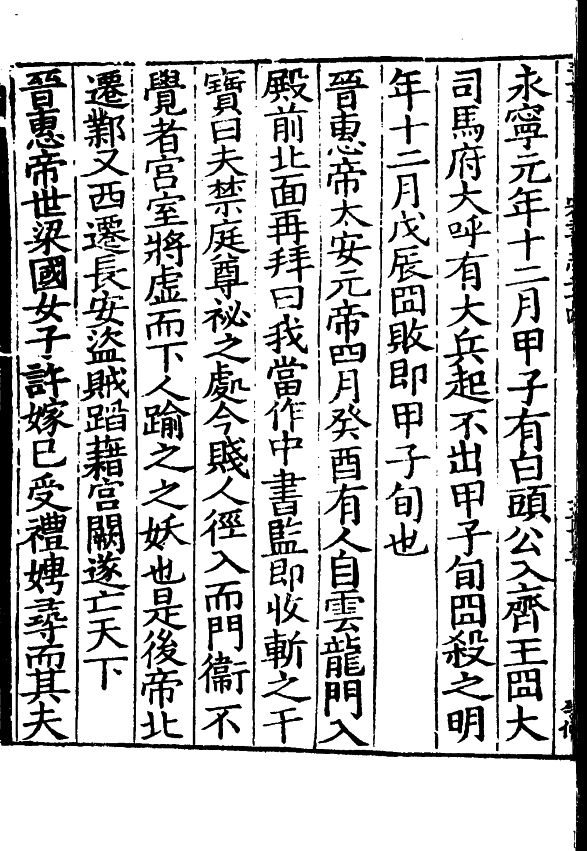 永寧元年十二月甲子有白頭公入齊王冏大
司馬府大呼有大兵起不出甲子旬冏殺之明
年十二月戊辰冏敗即甲子旬也
晉惠帝太安元帝四月癸酉有人自雲龍門入
殿前北面再拜曰我當作中書監即收斬之干
寶曰夫禁庭尊祕之處今賤人徑入而門衞不
覺者宮室將虛而下人踰之之妖也是後帝北
遷鄴又西遷長安盜賊蹈藉宮闕遂亡天下
晉惠帝世梁國女子許嫁已受禮娉尋而其夫